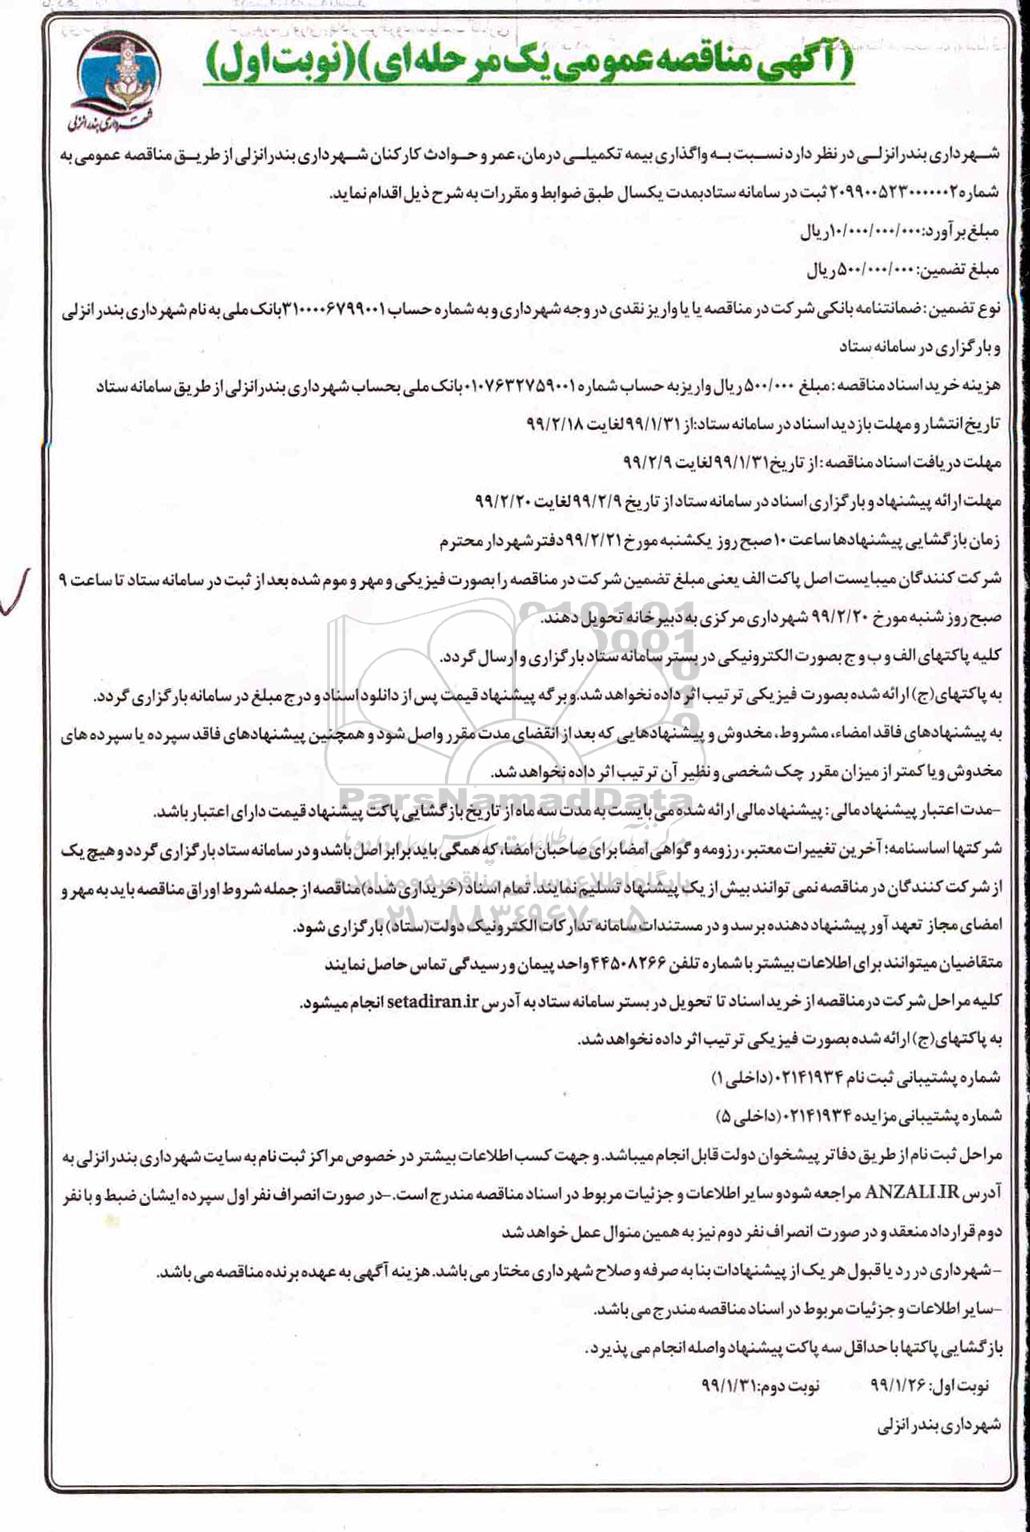 (آگهی مناقصه عمومی یک مرحله ای)(نوبت اول)
شهرداری بندرانزلی
شهرداری بندرانزلی در نظر دارد نسبت به واگذاری بیمه تکمیلی درمان، عمر و حوادث کارکنان شهرداری بندرانزلی از طریق مناقصه عمومی به
شماره ۲۰۹۹۰۰۵۲۳۰۰۰۰۰۰۲ ثبت در سامانه ستادبمدت یکسال طبق ضوابط و مقررات به شرح ذیل اقدام نماید.
مبلغ برآورد:۱۰/۰۰۰/۰۰۰/۰۰۰ریال
مبلغ تضمین: ۵۰۰/۰۰۰/۰۰۰ ریال
نوع تضمین: ضمانتنامه بانکی شرکت در مناقصه یا یا واریز نقدی در وجه شهرداری و به شماره حساب ۳۱۰۰۰۰۶۷۹۹۰۰۱بانک ملی به نام شهرداری بندر انزلی
و بارگزاری در سامانه ستاد
هزینه خرید اسناد مناقصه: مبلغ ۵۰۰/۰۰۰ ریال واریز به حساب شماره ۰۱۰۷۶۳۲۷۵۹۰۰۱بانک ملی بحساب شهرداری بندرانزلی از طریق سامانه ستاد
تاریخ انتشار و مهلت بازدید اسناد در سامانه ستاد:از ۹۹/۱/۳۱لغایت ۹۹/۲/۱۸
مهلت دریافت اسناد مناقصه: از تاریخ ۹۹/۱/۳۱لغایت ۹۹/۲/۹
مهلت ارائه پیشنهاد و بارگزاری اسناد در سامانه ستاد از تاریخ ۹۹/۲/۹لغایت ۹۹/۲/۲۰
زمان بازگشایی پیشنهادها ساعت ۱۰ صبح روز یکشنبه مورخ ۹۹/۲/۲۱دفتر شهردار محترم
شرکت کنندگان میبایست اصل پاکت الف یعنی مبلغ تضمین شرکت در مناقصه را بصورت فیزیکی و مهر و موم شده بعد از ثبت در سامانه ستاد تا ساعت ۹
صبح روز شنبه مورخ ۹۹/۲/۲۰ شهرداری مرکزی به دبیرخانه تحویل دهند.
کلیه پاکتهای الف و ب و ج بصورت الکترونیکی در بستر سامانه ستاد بارگزاری و ارسال گردد.
به پاکتهای(ج) ارائه شده بصورت فیزیکی ترتیب اثر داده نخواهد شد.و برگه پیشنهاد قیمت پس از دانلود اسناد و درج مبلغ در سامانه بارگزاری گردد.
به پیشنهادهای فاقد امضاء، مشروط، مخدوش و پیشنهادهایی که بعد از انقضای مدت مقرر واصل شود و همچنین پیشنهادهای فاقد سپرده یا سپرده های
مخدوش و یا کمتر از میزان مقرر چک شخصی و نظیر آن ترتیب اثر داده نخواهد شد.
-مدت اعتبار پیشنهاد مالی: پیشنهاد مالی ارائه شده می بایست به مدت سه ماه از تاریخ بازگشایی پاکت پیشنهاد قیمت دارای اعتبار باشد.
شرکتها اساسنامه؛ آخرین تغییرات معتبر، رزومه و گواهی امضا برای صاحبان امضاء که همگی باید برابر اصل باشد و در سامانه ستاد بارگزاری گردد و هیچ یک
از شرکت کنندگان در مناقصه نمی توانند بیش از یک پیشنهاد تسلیم نمایند. تمام اسناد (خریداری شده)مناقصه از جمله شروط اوراق مناقصه باید به مهر و
امضای مجاز تعهد آور پیشنهاد دهنده برسد و در مستندات سامانه تدارکات الکترونیک دولت(ستاد) بارگزاری شود.
متقاضیان میتوانند برای اطلاعات بیشتر با شماره تلفن ۴۴۵۰۸۲۶۶واحد پیمان و رسیدگی تماس حاصل نمایند
کلیه مراحل شرکت در مناقصه از خرید اسناد تا تحویل در بستر سامانه ستاد به آدرس setadiran.ir انجام میشود.
به پاکتهای(ج) ارائه شده بصورت فیزیکی ترتیب اثر داده نخواهد شد.
شماره پشتیبانی ثبت نام ۰۲۱۴۱۹۳۴(داخلی ۱)
شماره پشتیبانی مزایده ۰۲۱۴۱۹۳۴(داخلی ۵)
مراحل ثبت نام از طریق دفاتر پیشخوان دولت قابل انجام میباشد. و جهت کسب اطلاعات بیشتر در خصوص مراکز ثبت نام به سایت شهرداری بندرانزلی به
آدرس ANZALI.IR مراجعه شود و سایر اطلاعات و جزئیات مربوط در اسناد مناقصه مندرج است. -در صورت انصراف نفر اول سپرده ایشان ضبط و با نفر
دوم قرارداد منعقد و در صورت انصراف نفر دوم نیز به همین منوال عمل خواهد شد
-شهرداری در رد یا قبول هر یک از پیشنهادات بنا به صرفه و صلاح شهرداری مختار می باشد. هزینه آگهی به عهده برنده مناقصه می باشد.
-سایر اطلاعات و جزئیات مربوط در اسناد مناقصه مندرج می باشد.
بازگشایی پاکتها با حداقل سه پاکت پیشنهاد واصله انجام می پذیرد.
نوبت اول: ۹۹/۱/۲۶ نوبت دوم:۹۹/۱/۳۱
شهرداری بندر انزلی
ParsNamadData
پایگاه اطلاع رسانی مناقصه و مزایده
۰۲۱-۸۸۳۴۹۶۷۰-۵